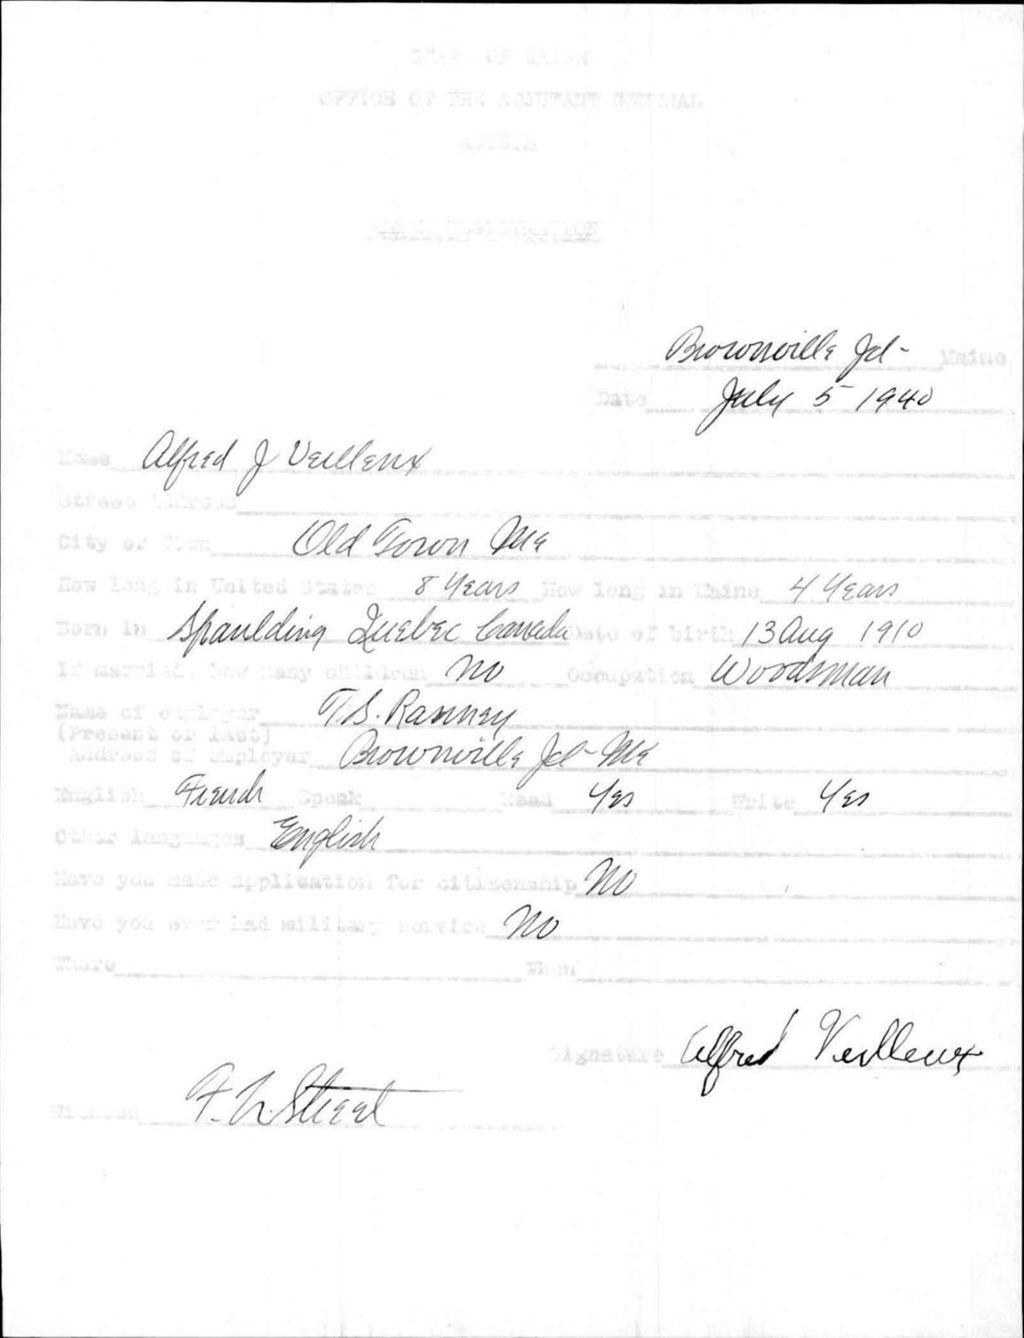 STATE OF MAINE
OFFICE OF THE ADJUTANT GENERAL
AUGUSTA
ALIEN REGISTRATION
Brownville Jct- Maine
Date July 5 1940
Name Alfred J Veilleux
Street Address
City or Town Old Town Me
How long in United States 8 Years How long in Maine 4 Years
Born in Spaulding Quebec Canada Date of birth 13 Aug 1910
If married, how many children No Occupation Woodsman
Name of employer T.S. Ranney
(Present or last)
Address of employer Brownville Jct- Me
English French Speak Read Yes Write Yes
Other languages English
Have you made application for citizenship No
Have you ever had military service No
Where When
Signature Alfred Veilleux
Witness